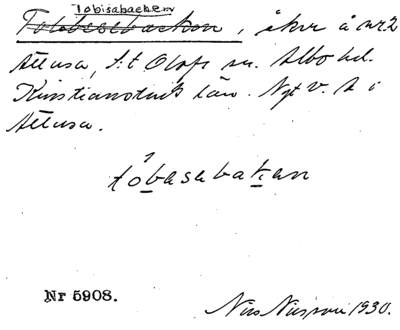 Tobisabacken
Tobbesebacken, åker å nr 2
Attusa, S:t Olofs sn. Albo hd.
Kristianstads län. Ngt v. A i
Attusa.
tobasabakan
Nr 5908.
Nils Nilsson 1930.